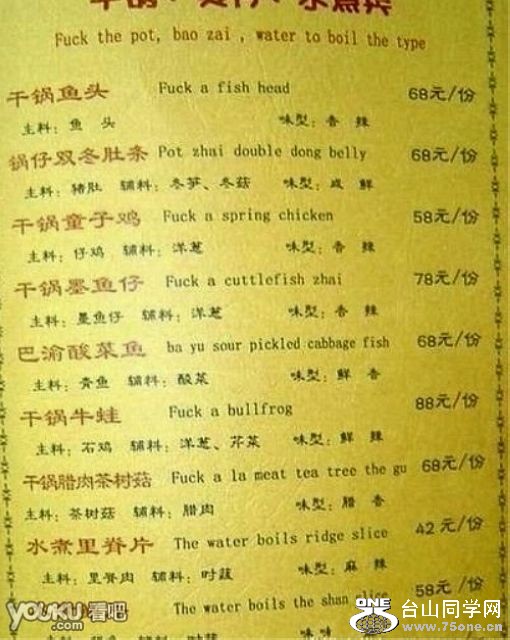 Fuck the pot, bao zai , water to boil the type
干锅鱼头 Fuck a fish head 68元/份
主料：鱼 头 味型：香 辣
锅仔双冬肚条 Pot zhai double dong belly 68元/份
主料：猪肚 辅料：冬笋、冬菇 味型：咸 鲜
干锅童子鸡 Fuck a spring chicken 58元/份
主料：仔鸡 辅料：洋葱 味型：香 辣
干锅墨鱼仔 Fuck a cuttlefish zhai 78元/份
主料：墨鱼仔 辅料：洋葱 味型：香 辣
巴渝酸菜鱼 ba yu sour pickled cabbage fish 68元/份
主料：青鱼 辅料：酸菜 味型：鲜 香
干锅牛蛙 Fuck a bullfrog 88元/份
主料：石鸡 辅料：洋葱、芹菜 味型：鲜 辣
干锅腊肉茶树菇 Fuck a la meat tea tree the gu 68元/份
主料：茶树菇 辅料：腊肉 味型：腊 香
水煮里脊片 The water boils ridge slice 42元/份
主料：里脊肉 辅料：时蔬 味型：麻 辣
The water boils the shan slice 58元/份
YOUKU 看吧
ONE 台山同学网
www.75one.cn